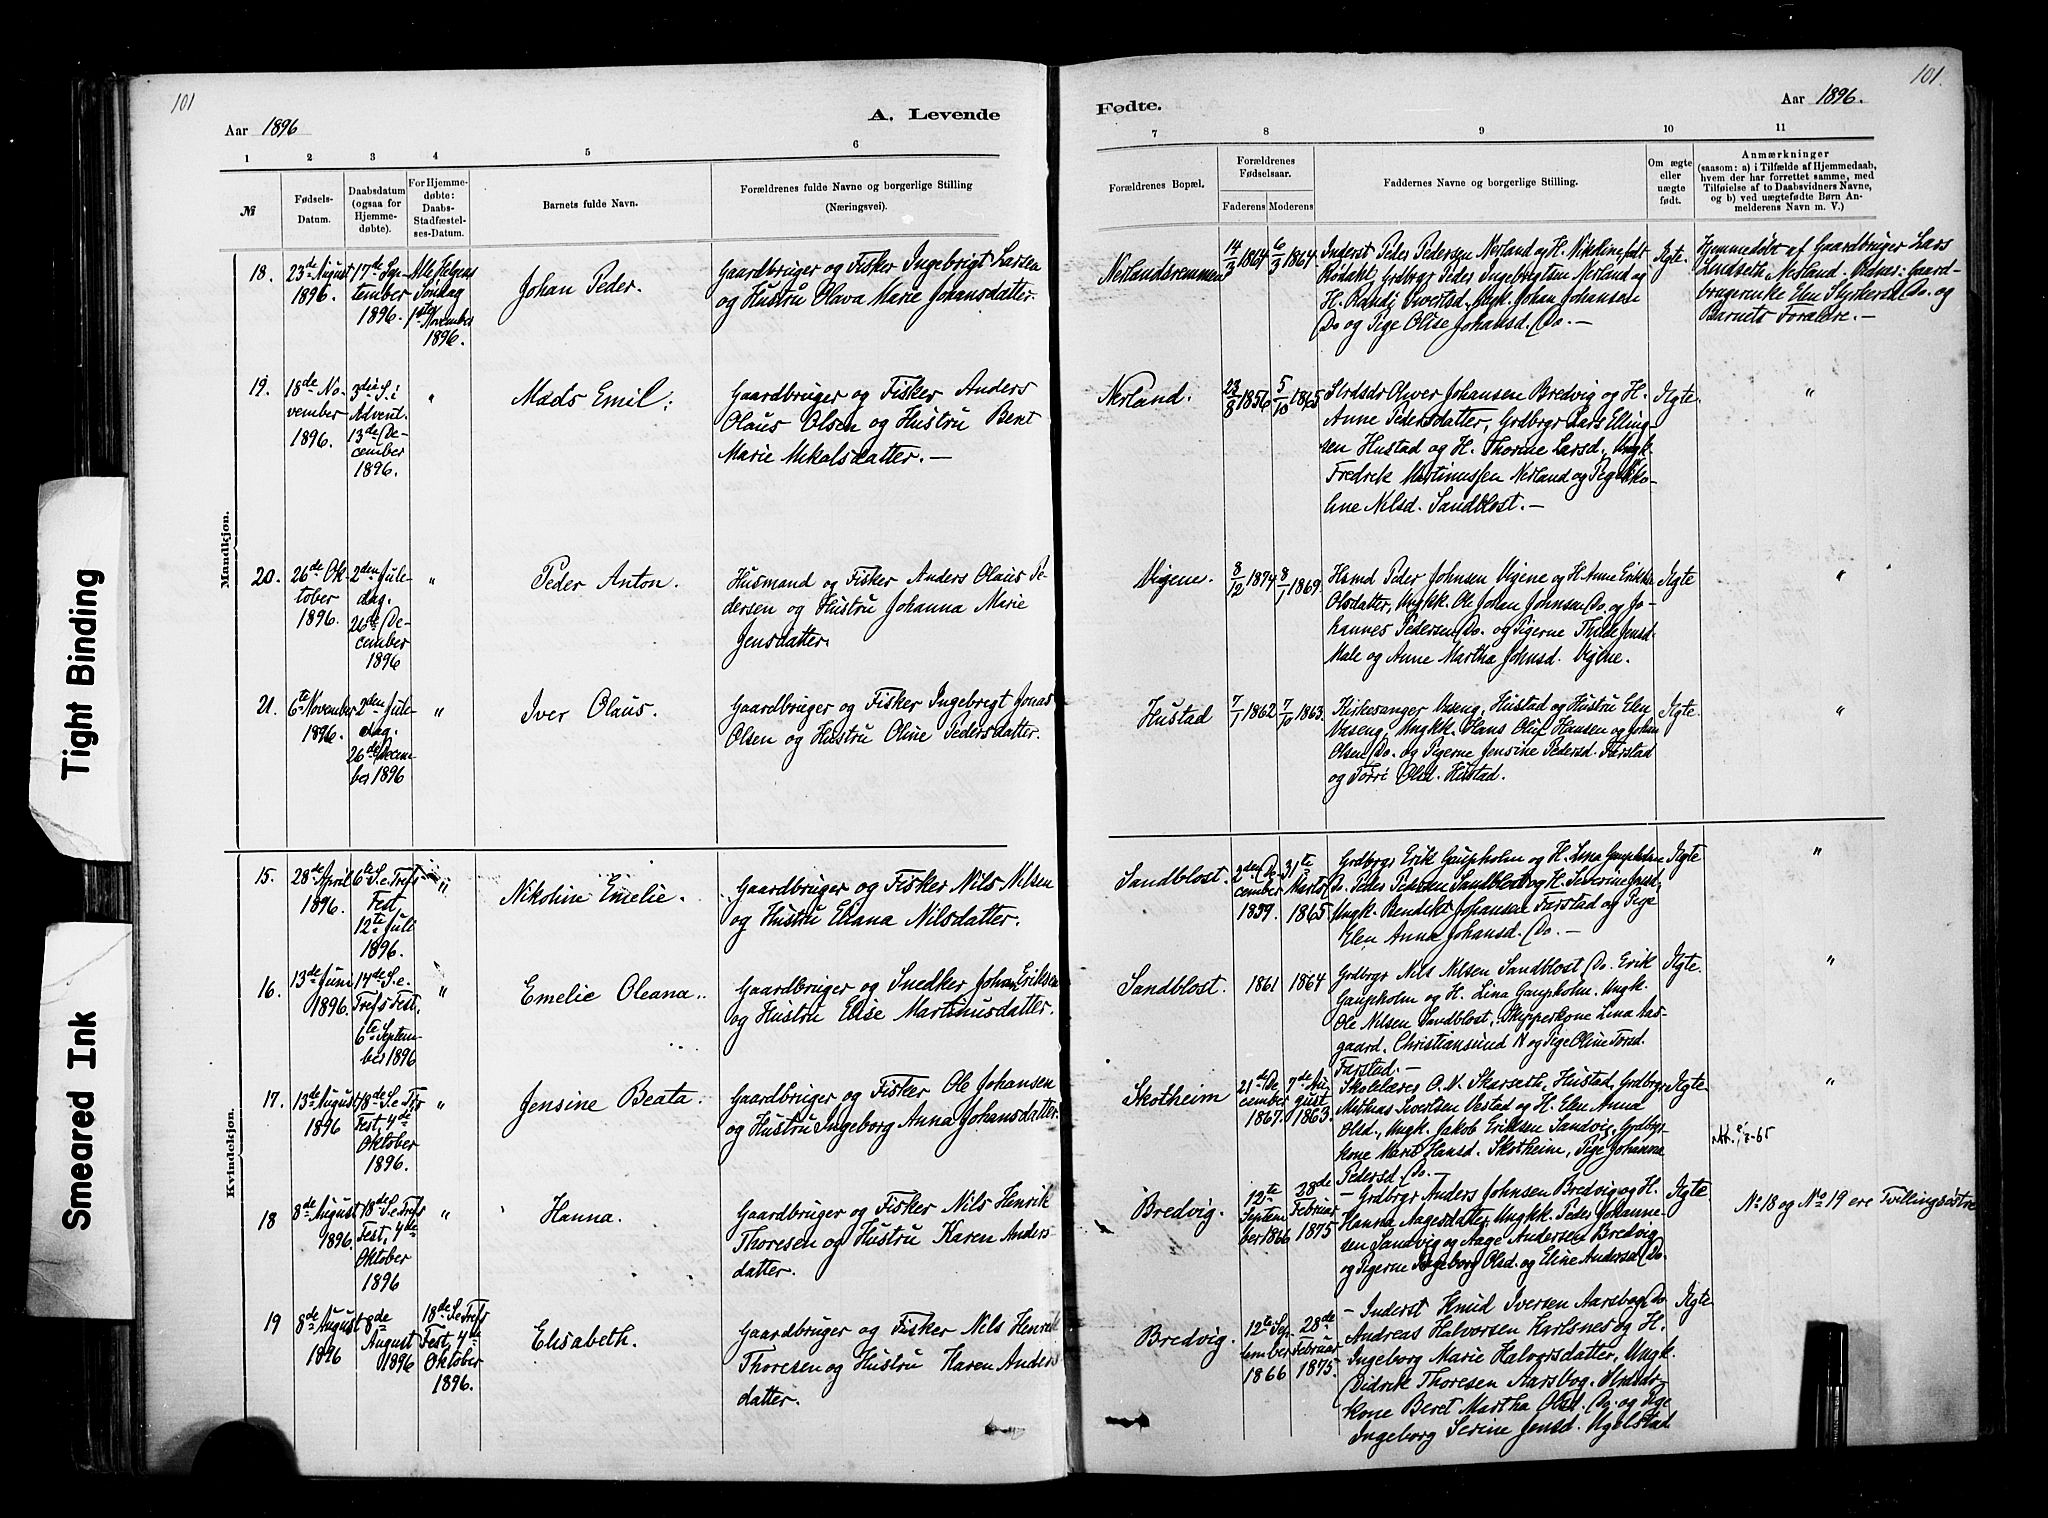 101
Aar 1896
A. Levende
1
2
3
4
5
6
№
Fødsels-
Datum.
Daabsdatum
(ogsaa for
Hjemme-
døbte).
For Hjemme-
døbte:
Daabs-
Stadfæstel-
ses-Datum.
Barnets fulde Navn.
Forældrenes fulde Navne og borgerlige Stilling
(Næringsvei).
Mandkjøn.
18.
23de August
1896.
17de Sep-
tember
1896.
Alle Helgens
Søndag
1ste November
1896.
Johan Peder.
Gaardbruger og Fisker Ingebrigt Larsen
og Hustru Olava Marie Johansdatter.
19.
18de No-
vember
1896.
3die S. i
Advent.
13de De-
cember
1896.
"
Mads Emil.
Gaardbruger og Fisker Anders
Olaus Olsen og Hustru Bent
Marie Mikalsdatter. —
20.
26de Ok-
tober
1896.
2den Jule-
dag.
26de De-
cember
1896
"
Peder Anton.
Husmand og Fisker Anders Olaus Pe-
dersen og Hustru Johanna Marie
Jensdatter.
21.
6te November
1896.
2den Jule-
dag.
26de Decem-
ber 1896
"
Iver Olaus.
Gaardbruger og Fisker Ingebrigt Jonas
Olsen og Hustru Oline Pedersdatter.
Kvindekjøn.
15.
28de April
1896.
6te S. e. Trefs
Fest,
12te Juli
1896.
"
Nikoline Emelie.
Gaardbruger og Fisker Nils Nilsen
og Hustru Eliana Nilsdatter.
16.
13de Juni
1896.
14de S. e.
Trefs Fest,
6te Septem-
ber 1896
"
Emelie Oleana.
Gaardbruger og Snedker Johan Eriksen
og Hustru Elise Martinusdatter.
17.
13de August
1896
18de S. e. Trefs
Fest, 4de
Oktober
1896.
"
Jensine Beata.
Gaardbruger og Fisker Ole Johansen
og Hustru Ingeborg Anna Johansdatter.
18
8de August
1896.
18de S. e. Trefs
Fest, 4de
Oktober
1896
"
Hanna.
Gaardbruger og Fisker Nils Henrik
Thoresen og Hustru Karen Anders-
datter.
19
8de August
1896
8de
August
1896
18de S. e. Trefs
Fest, 4de
Oktober
1896.
Elisabeth.
Gaardbruger og Fisker Nils Henrik
Thoresen og Hustru Karen Anders
datter.
101.
Fødte.
Aar 1896.
7
8
9
10
11
Forældrenes Bopæl.
Forældrenes
Fødselsaar.
Faderens
Moderens
Faddernes Navne og borgerlige Stilling.
Om ægte
eller
uægte
født.
Anmærkninger
(saasom: a) i Tilfælde af Hjemmedaab,
hvem der har forrettet samme, med
Tilføielse af to Daabsvidners Navne,
og b) ved uægtefødte Børn An-
melderens Navn m. V.)
Nerlandsremmen
14/3 1864
6/3 1864.
Inderst Peder Pedersen Nerland og H. Nikoline
Grdbrgr Peder Ingebrigtsen Nerland og
H. Randi Ungk. Johan Johansen
Do og Pige Olise Johansd. Do. —
Ægte.
Hjemmedøbt af Gaardbruger Lars
Nerland. Vidner: Gaard-
brugerenke Elen Do. og
Barnets Forældre. —
Nerland.
23/8 1856
5/10 1865
Oliver Johansen Bredvig og H.
Anne Pedersdatter, Grdbrgr Lars Elling-
sen Hustad og H. Thorine Larsd., Ungk.
Fredrik Martinussen Nerland og Pige Niko-
line Nilsd. Sandblost. —
Ægte.
"
Vigene.
8/12 1874
8/1 1869.
Hsmd Peder Johnsen Vigene og H. Anne Erikke
Olsdatter, Ungkk. Ole Johan Johnsen Do. og Jo-
hannes Pedersen Do. og Pigerne Thilde Jensd.
Male og Anne Martha Johnsd. Vigene.
Ægte
"
Hustad
7/1 1862
7/10 1863.
Kirkesanger Vaseng, Hustad og Hustru Elen
Vaseng, Ungkk. Hans Oluf Hansen og Johan
Olsen Do. og Pigerne Jensine Pedersd. Farstad
og Torri Olsd. Hustad.
Ægte.
"
Sandblost.
2den De-
cember
1859.
31te
Marts
1865
Grdbrgr Erik Gaupholm og H. Lina Gaupholm
Do. Peder Pedersen Sandblost og H. Severine
Ungk. Bendikt Johansen Farstad og Pige
Elen Anna Johansd. Do. —
Ægte
"
Sandblost.
1861
1864
Grdbrgr Nils Nilsen Sandblost, Do. Erik
Gaupholm og H. Lina Gaupholm. Ungk.
Ole Nilsen Sandblost, Skipperkone Lina Aas-
gaard. Christiansund N og Pige Oline
Farstad. —
Ægte.
"
Skotheim
21de De-
cember
1867.
7de Au-
gust
1863.
Skolelærer O. N. Skarseth, Hustad, Grdbrgr
Mathias Sivertsen Vestad og H. Elen Anna
Olsd., Ungk. Jakob Eriksen Sandvig, Grdbgr-
kone Marit Hansd. Skotheim, Pige Johanna
Pedersd. Do. —
Ægte
"
Bredvig.
12te
Septem
ber 1866
28de
Februar
1875
— Grdbrgr Anders Johnsen Bredvig og H.
Hanna Aagesdatter, Ungkk. Peder Johanne-
sen Sandvig og Aage Andersen Bredvig
og Pigerne Ingeborg Olsd. og Eline Andersd. Do.
Ægte.
No 18 og No 19 ere Tvillingsøstre
Bredvig.
12te Sep-
tember
1866
28de
Februar
1875.
— Inderst Knud Iversen Aarsbog, Do
Andreas Halvorsen Karlsnes og H.
Ingeborg Marie Halvorsdatter, Ungk.
Didrik Thoresen Aarsbog,
kone Beret Martha Olsd. Do. og Pige
Ingeborg Serine Jensd. Ugelstad
Ægte
Tight Binding
Smeared Ink